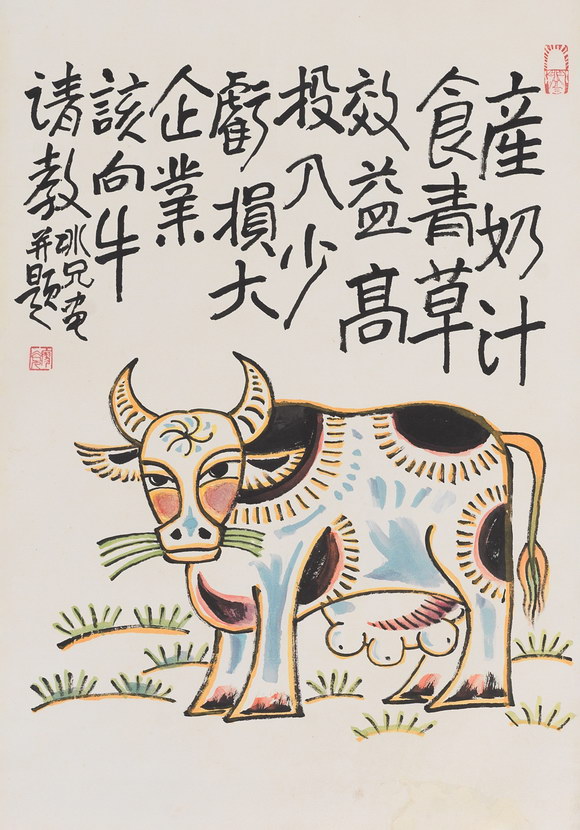 産奶汁
食青草
效益髙
投入少
虧損大
企業
該向牛
请教
冰兄画
并题